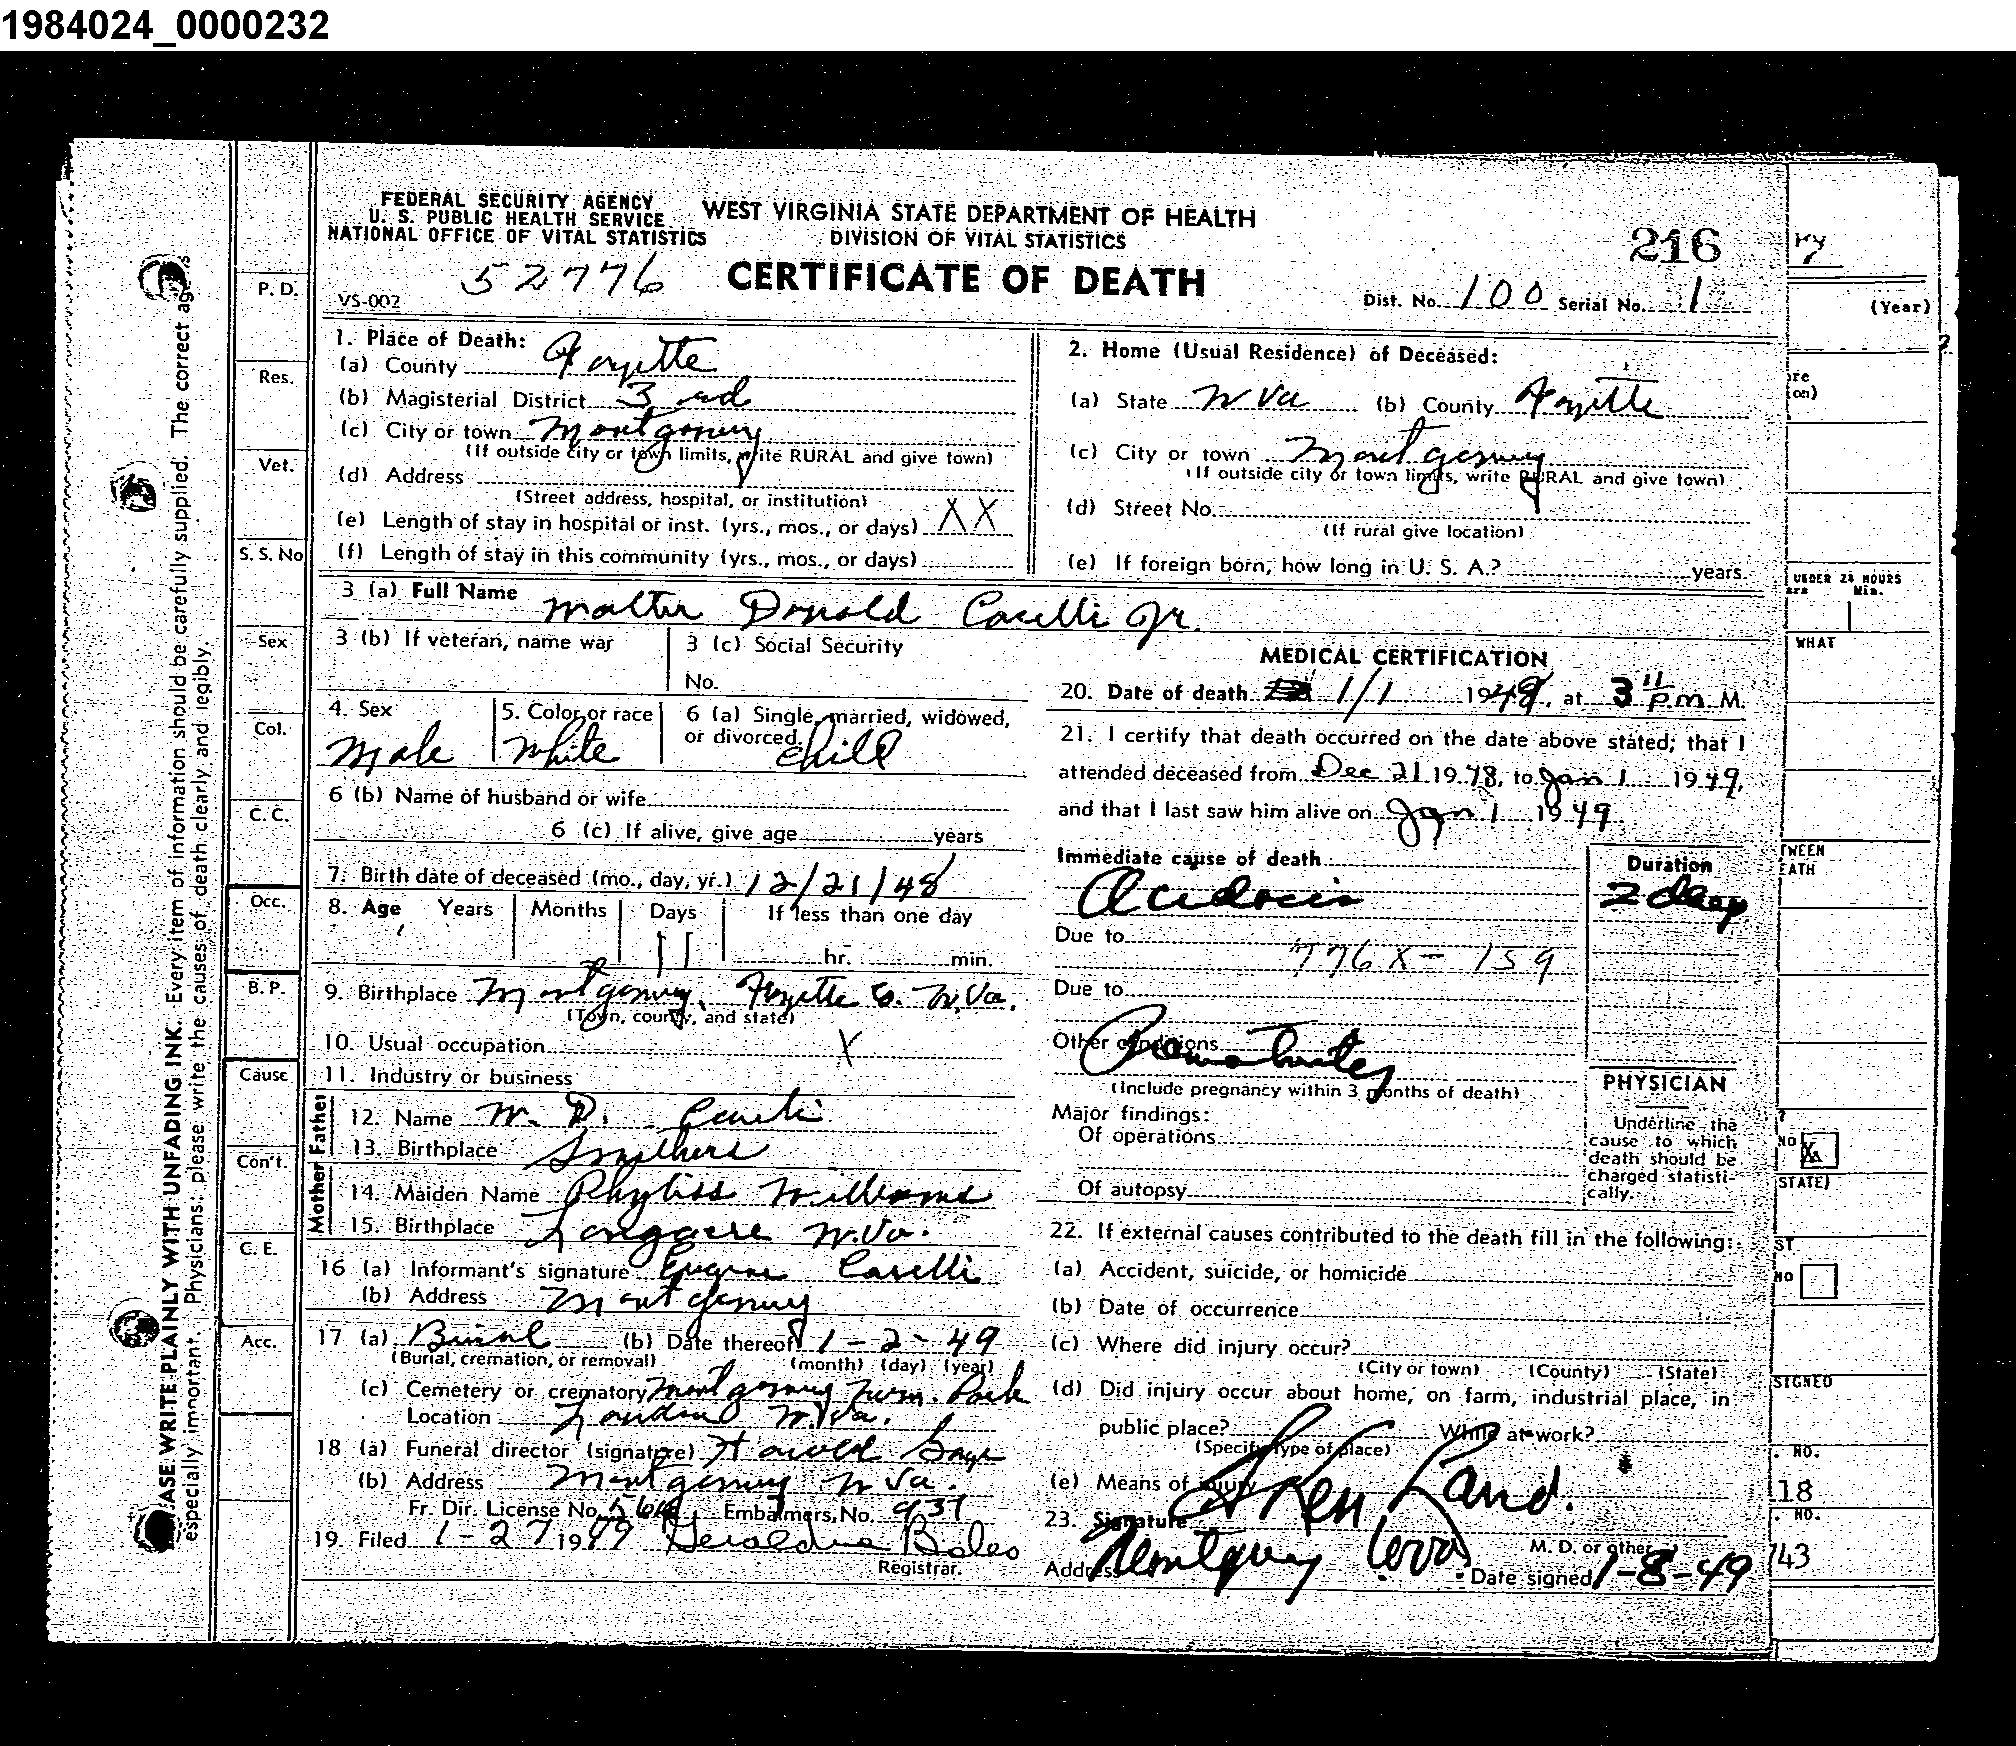 1984024_0000232
FEDERAL SECURITY AGENCY
U. S. PUBLIC HEALTH SERVICE
NATIONAL OFFICE OF VITAL STATISTICS
WEST VIRGINIA STATE DEPARTMENT OF HEALTH
DIVISION OF VITAL STATISTICS
216
52776
CERTIFICATE OF DEATH
VS-002
Dist. No. 100 Serial No. 1
1. Place of Death:
(a) County Fayette
(b) Magisterial District 3 rd
(c) City or town Montgomery
(If outside city or town limits, write RURAL and give town)
(d) Address
(Street address, hospital, or institution)
(e) Length of stay in hospital or inst. (yrs., mos., or days) XX
(f) Length of stay in this community (yrs., mos., or days)
2. Home (Usual Residence) of Deceased:
(a) State W Va (b) County Fayette
(c) City or town Montgomery
(If outside city or town limits, write RURAL and give town)
(d) Street No.
(If rural give location)
(e) If foreign born, how long in U. S. A.? years
3 (a) Full Name Walter Donald Caselli Jr.
3 (b) If veteran, name war
3 (c) Social Security
No.
4. Sex
Male
5. Color or race
White
6 (a) Single, married, widowed,
or divorced child
6 (b) Name of husband or wife
6 (c) If alive, give age years
7. Birth date of deceased (mo., day, yr.) 12/21/48
8. Age Years Months Days If less than one day
11 hr. min.
9. Birthplace Montgomery, Fayette Co. W.Va.
(Town, county, and state)
10. Usual occupation X
11. Industry or business
Father
12. Name W. D. Caselli
13. Birthplace Smithers
Mother
14. Maiden Name Phyliss Williams
15. Birthplace Longacre W.Va.
16 (a) Informant's signature Eugene Caselli
(b) Address Montgomery
17 (a) Burial (b) Date thereof 1-2-49
(Burial, cremation, or removal) (month) (day) (year)
(c) Cemetery or crematory Montgomery Mem. Park
Location London W.Va.
18 (a) Funeral director (signature) Harold
(b) Address Montgomery W Va.
Fr. Dir. License No. Embalmers, No. 937
19. Filed 1-27 1949 Geraldine Boles
Registrar.
MEDICAL CERTIFICATION
20. Date of death 1/1 1949, at 3 11 p.m M.
21. I certify that death occurred on the date above stated; that I
attended deceased from Dec 21 1948, to Jan 1 1949,
and that I last saw him alive on Jan 1 1949
Immediate cause of death
Acidosis
Duration
2 days
Due to
776X- 159
Due to
Other conditions Prematurity
(Include pregnancy within 3 months of death)
Major findings:
Of operations
Of autopsy
PHYSICIAN
Underline the
cause to which
death should be
charged statisti-
cally.
22. If external causes contributed to the death fill in the following:
(a) Accident, suicide, or homicide
(b) Date of occurrence
(c) Where did injury occur?
(City or town) (County) (State)
(d) Did injury occur about home, on farm, industrial place, in
public place? While at work?
(Specify type of place)
(e) Means of injury
23. Signature
M. D. or other
Address Montgomery W Va Date signed 1-8-49
P. D.
Res.
Vet.
S. S. No
Sex
Col.
C. C.
Occ.
B. P.
Cause
Con't.
C. E.
Acc.
EASE WRITE PLAINLY WITH UNFADING INK. Every item of information should be carefully supplied. The correct age is
especially important. Physicians: please write the causes of death clearly and legibly.
ry
(Year)
re
on)
UNDER 24 HOURS
Min.
WHAT
TWEEN
EATH
?
NO X
STATE)
ST
NO
SIGNED
. NO.
18
. NO.
743